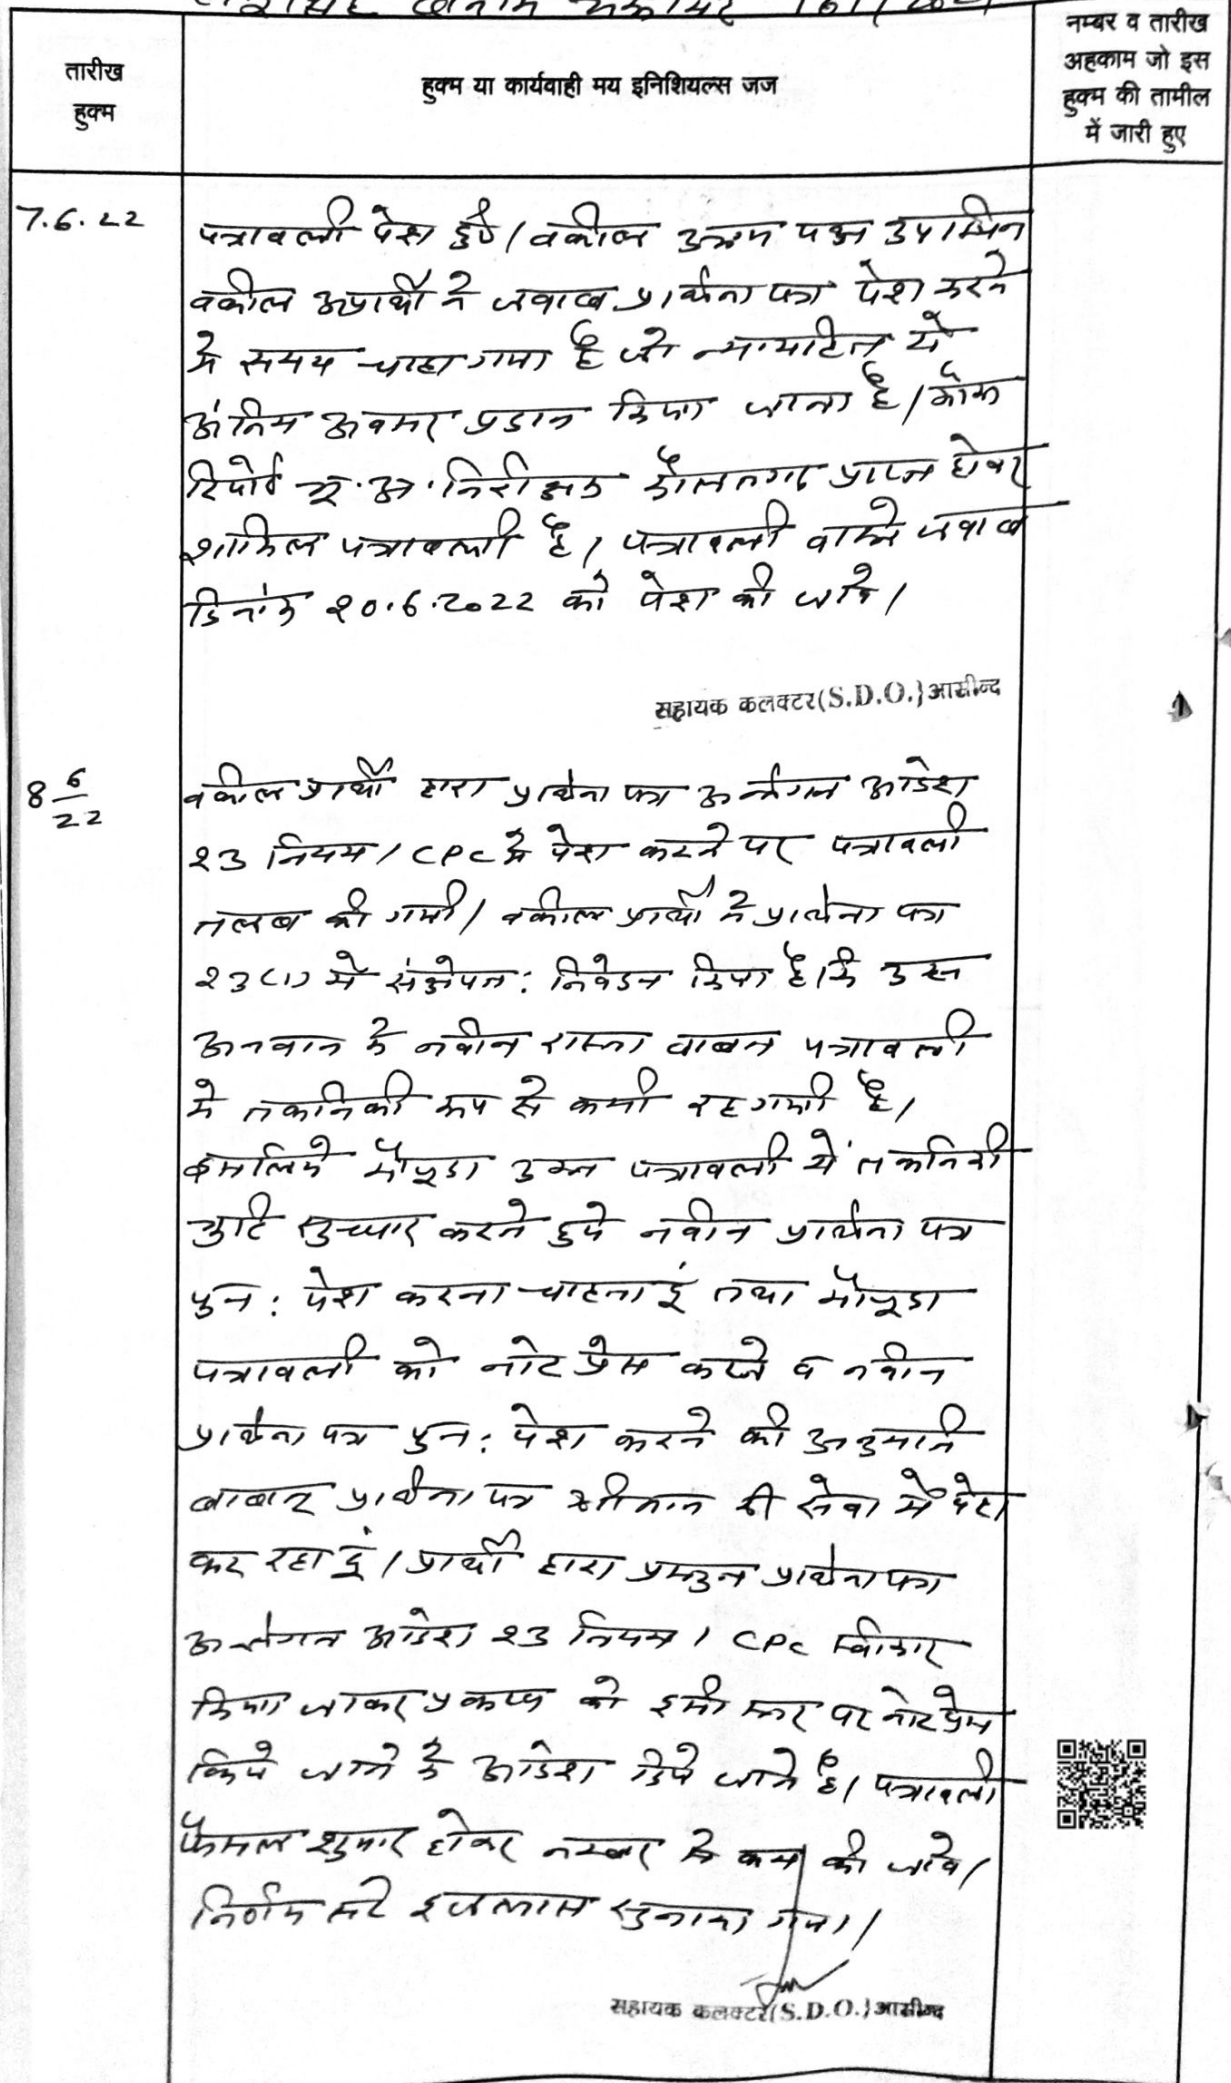 नम्बर व तारीख
अहकाम जो इस
हुक्म की तामील
में जारी हुए
तारीख
हुक्म
हुक्म या कार्यवाही मय इनिशियल्स जज
7.6.22
पत्रावली पेश हुई। वकील उभय पक्ष उपस्थित
वकील अप्रार्थी ने जवाब प्रार्थना पत्र पेश करने
में समय चाहा गया है जो न्यायहित में
अंतिम अवसर प्रदान किया जाता है। मौका
रिपोर्ट भू.अ.निरीक्षक दौलतगढ प्राप्त होकर
शामिल पत्रावली है। पत्रावली वास्ते जवाब
दिनांक 20.6.2022 को पेश की जावे।
सहायक कलक्टर(S.D.O.)आसीन्द
8 6/22
वकील प्रार्थी द्वारा प्रार्थना पत्र अन्तर्गत आदेश
23 नियम 1 CPC में पेश करने पर पत्रावली
तलब की गयी। वकील प्रार्थी ने प्रार्थना पत्र
23(1) में संक्षेपत: निवेदन किया है कि उक्त
अनवान के नवीन रास्ता बाबत पत्रावली
में तकनिकी रूप से कमी रह गयी है।
इसलिये मौजूदा उक्त पत्रावली में तकनिकी
त्रुटि सुधार करते हुये नवीन प्रार्थना पत्र
पुन: पेश करना चाहता हूं तथा मौजूदा
पत्रावली को नोट प्रेस करने व नवीन
प्रार्थना पत्र पुन: पेश करने की अनुमति
बाबत प्रार्थना पत्र श्रीमान की सेवा में पेश
कर रहा हूं। प्रार्थी द्वारा प्रस्तुत प्रार्थना पत्र
अन्तर्गत आदेश 23 नियम 1 CPC स्वीकार
किया जाकर प्रकरण को इसी स्तर पर नोट प्रेस
किये जाने के आदेश दिये जाते है। पत्रावली
फैसल शुमार होकर नम्बर से कम की जावे।
निर्णय सरे इजलास सुनाया गया।
सहायक कलक्टर(S.D.O.)आसीन्द